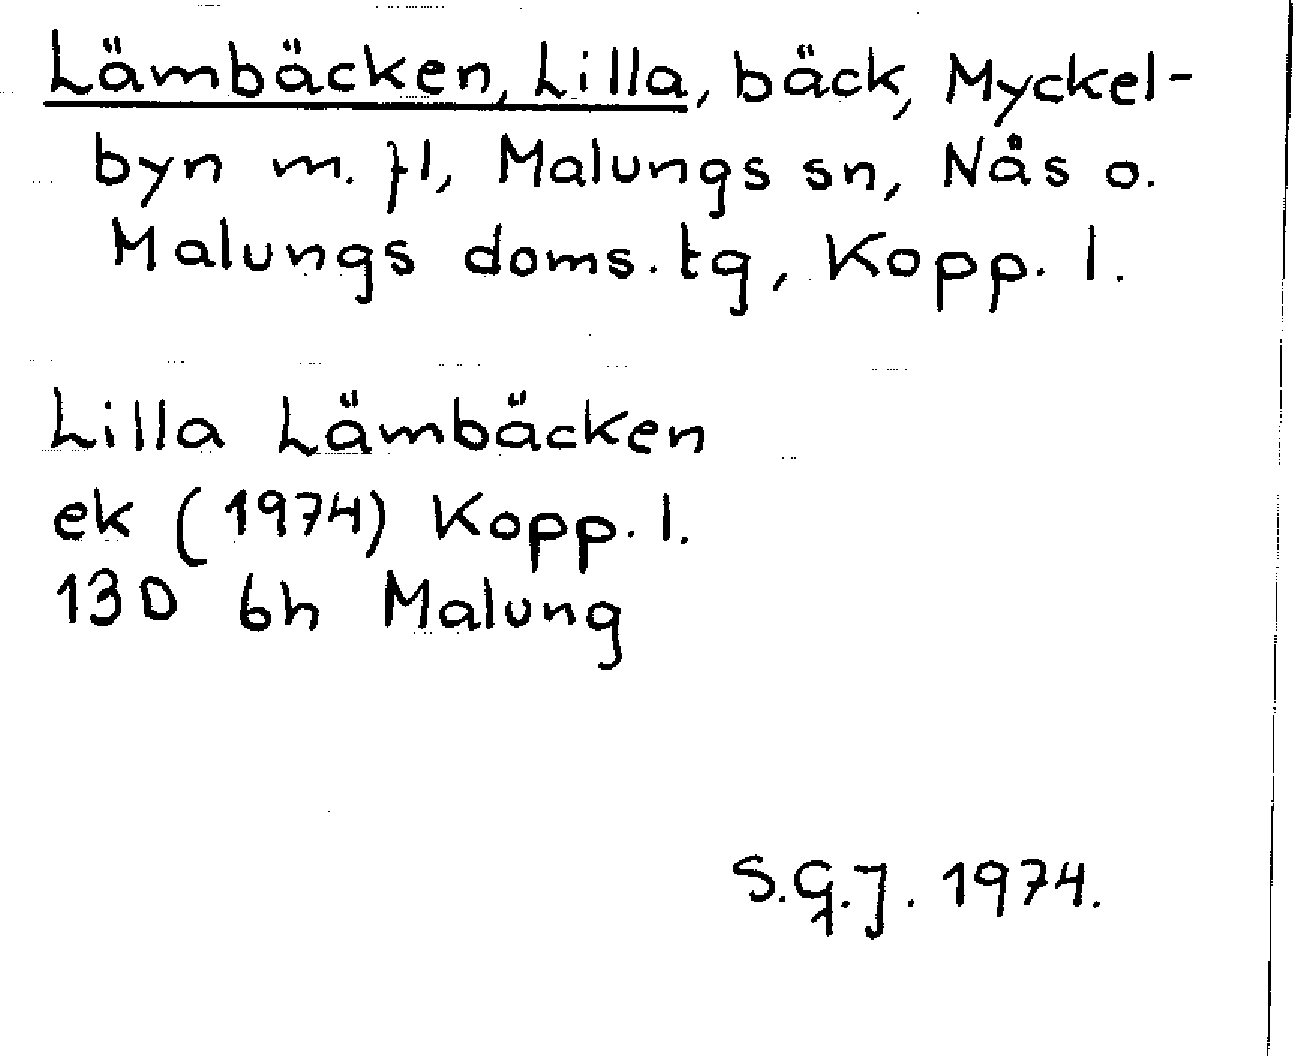 Lämbäcken, Lilla, bäck, Myckel-
byn m. fl, Malungs sn, Nås o.
Malungs doms. tg, Kopp. l.
Lilla Lämbäcken
ek (1974) Kopp. l.
13D 6h Malung
S.G.J. 1974.